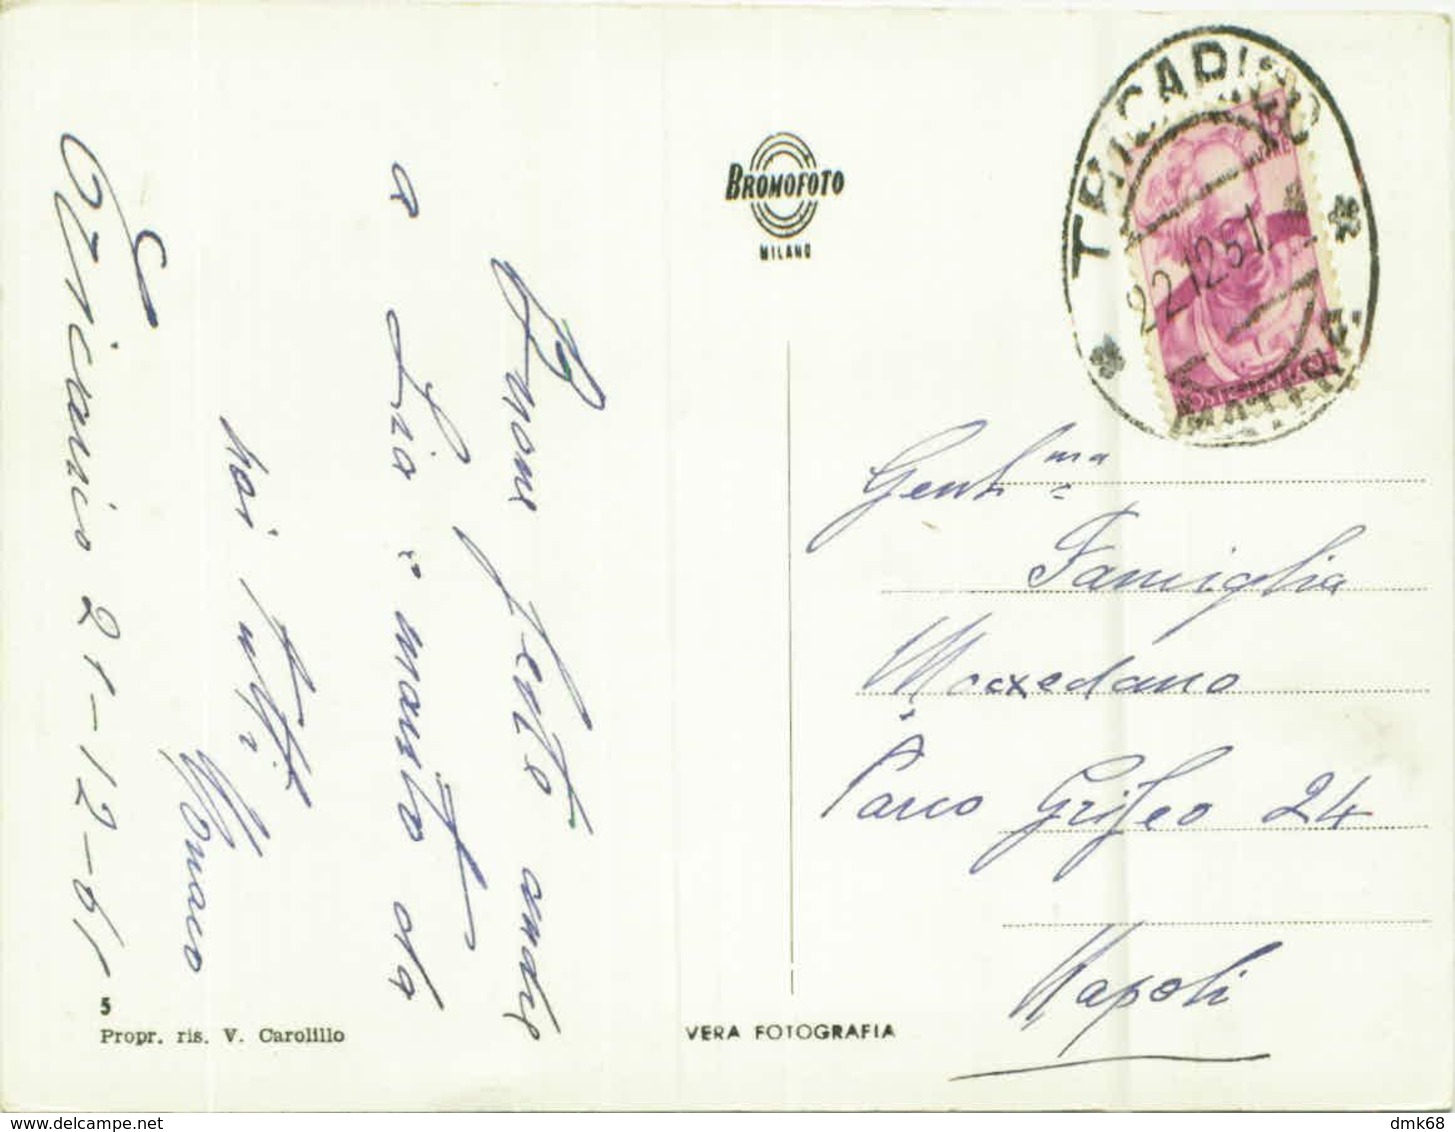 Buone feste anche
a Lia e marito da
noi tutti
Monaco
Tricarico 21-12-61
5
Propr. ris. V. Carolillo
VERA FOTOGRAFIA
BROMOFOTO
MILANO
TRICARICO
22.12.61
MATERA
LIRE
Gent.ma
Famiglia
Parco Grifeo 24
Napoli
www.delcampe.net
dmk68